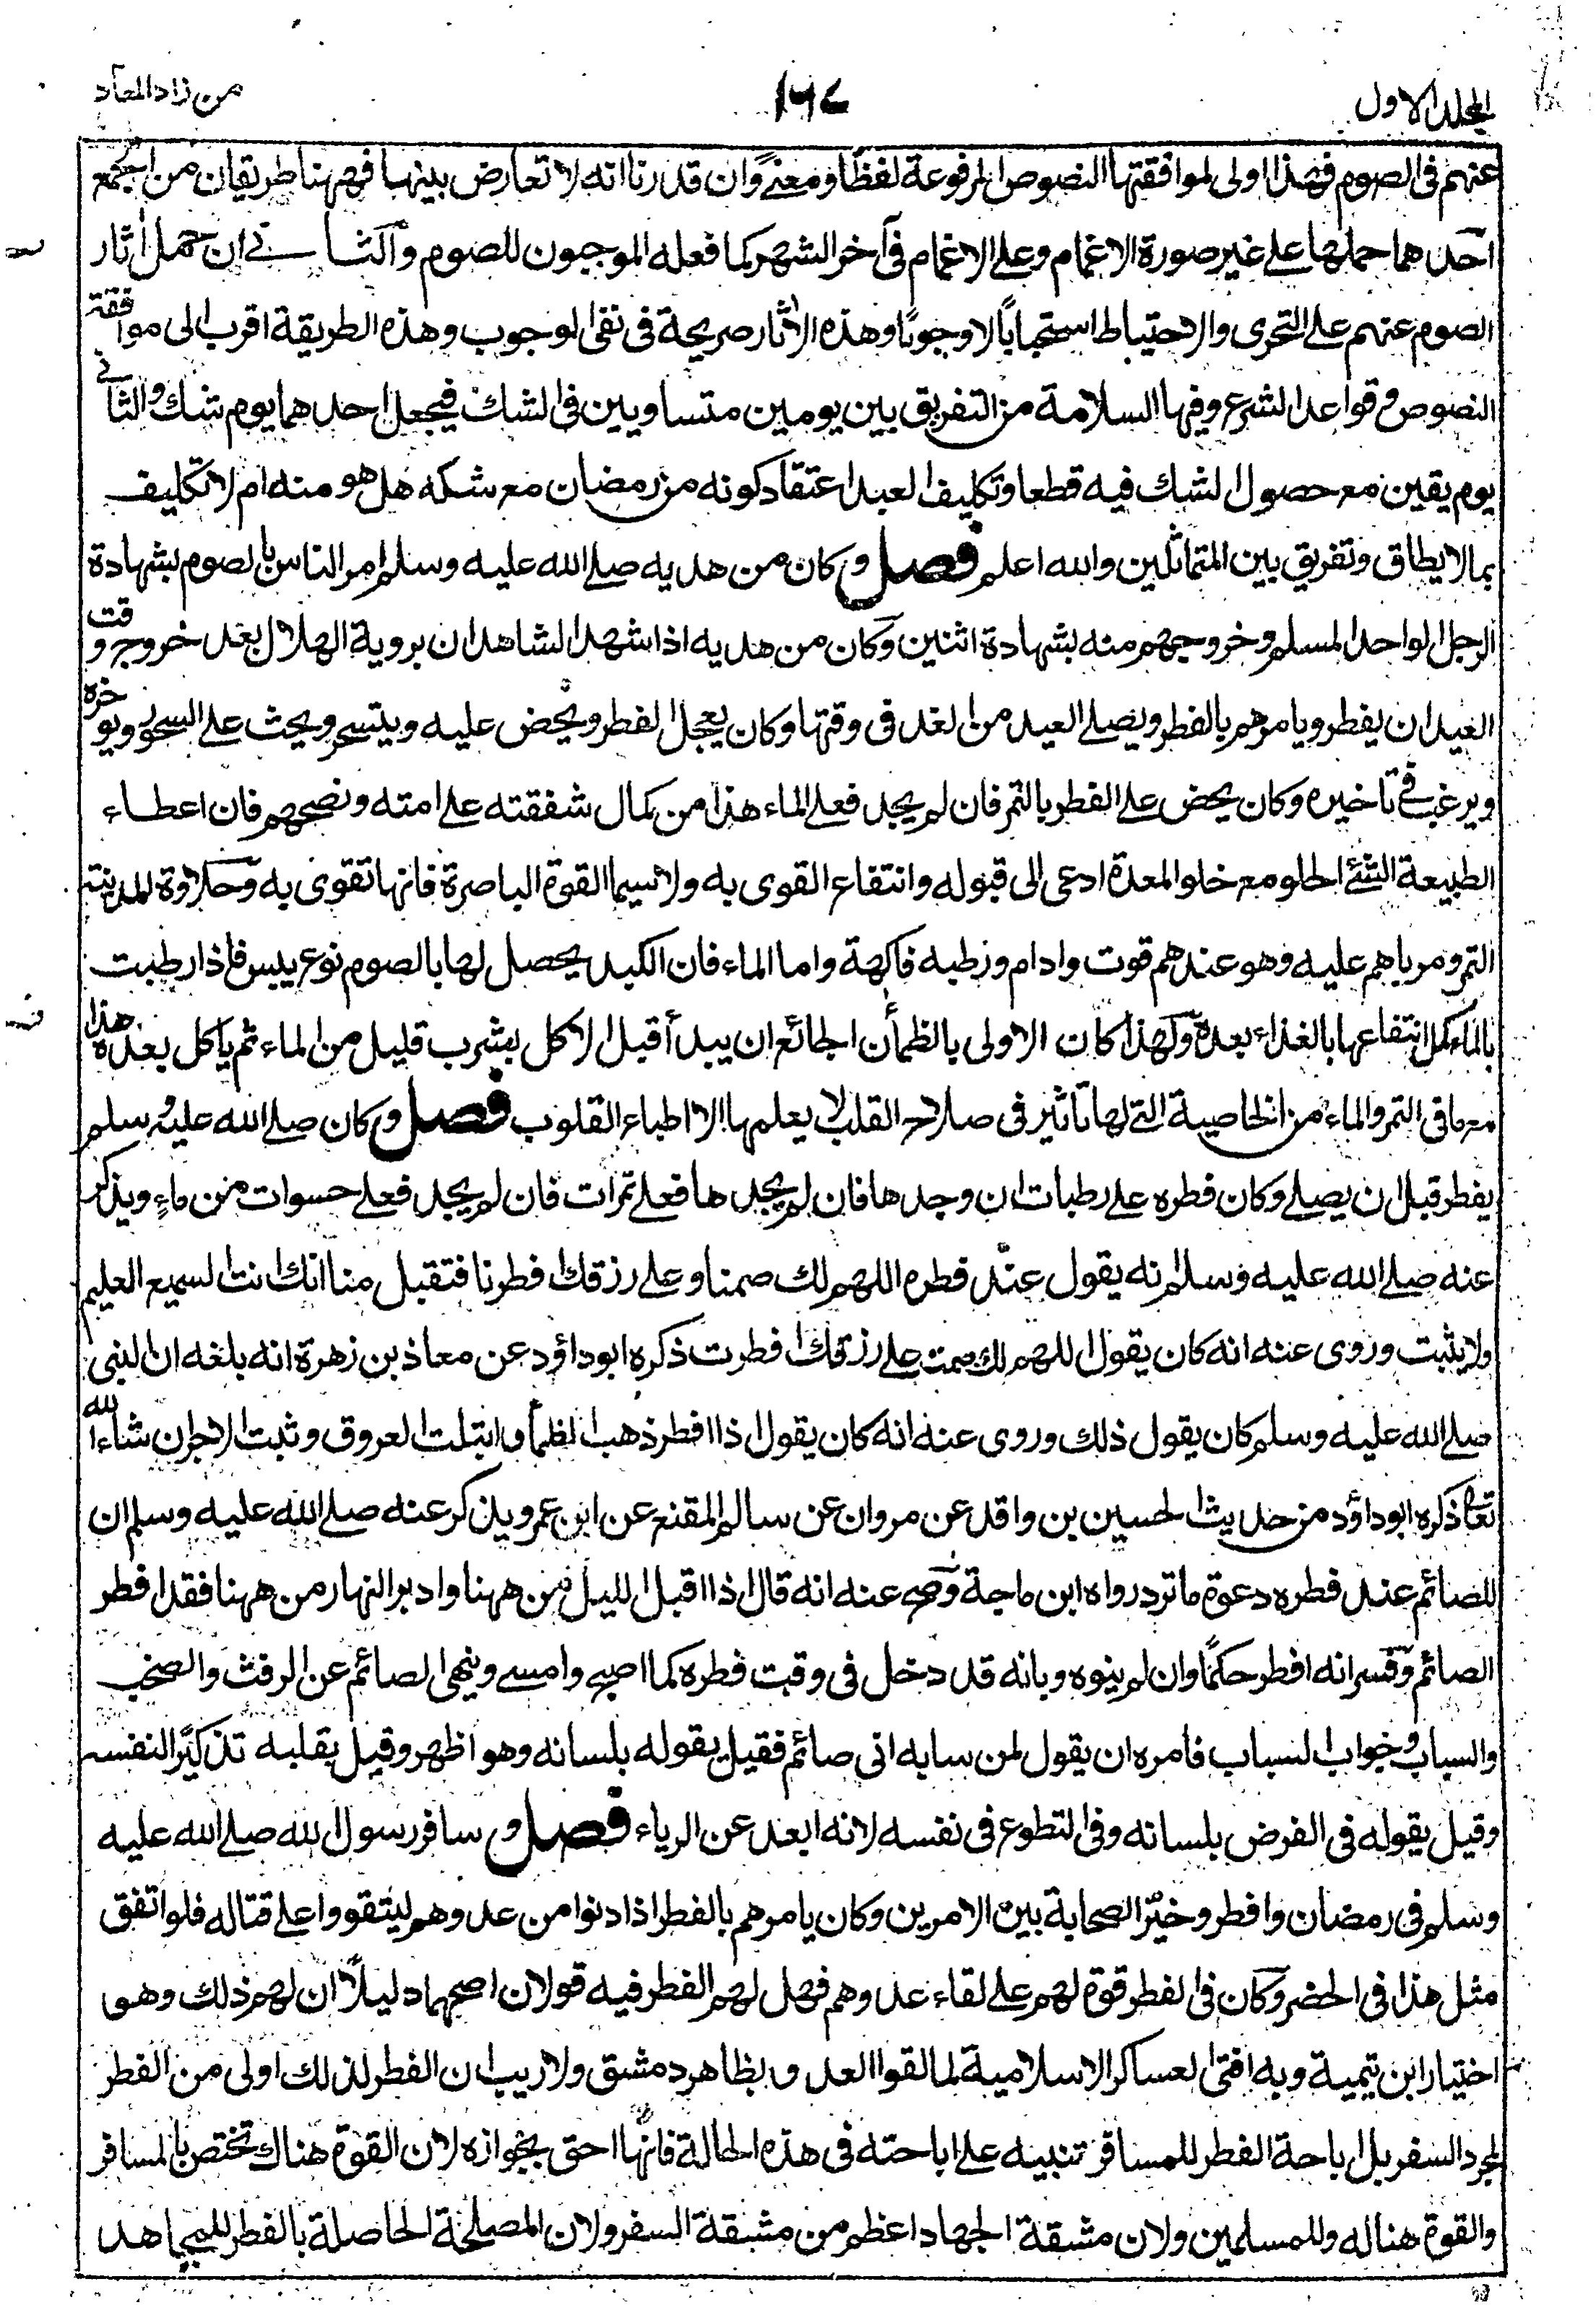 المجلد الاول
١٦٧
من زاد المعاد
عنهم فى الصوم فهذا اولى لموافقتها النصوص المرفوعة لفظًا ومعنىً وان قدرنا انه لا تعارض بينها فههنا طريقان من الجمع
احدهما حملها على غير صورة الاغمام وعلى الاغمام فى آخر الشهر كما فعله الموجبون للصوم والثانے ان حمل آثار
الصوم عنهم على التحرى والاحتياط استحبابًا لا وجوبًا وهذه الآثار صريحة فى نفى الوجوب وهذه الطريقة اقرب الى موافقة
النصوص وقواعد الشرع وفيها السلامة من التفريق بين يومين متساويين فى الشك فيجعل احدهما يوم شك والثانے
يوم يقين مع حصول الشك فيه قطعا وتكليف العبد اعتقاد كونه من رمضان مع شكه هل هو منه ام لا تكليف
بما لا يطاق وتفريق بين المتماثلين والله اعلم فصل وكان من هديه صلے الله عليه وسلم امر الناس بالصوم بشهادة
الرجل الواحد المسلم وخروجهم منه بشهادة اثنين وكان من هديه اذا شهد الشاهدان بروية الهلال بعد خروج وقت
العيد ان يفطر ويامرهم بالفطر ويصلے العيد من الغد فى وقتها وكان يعجل الفطر ويحض عليه ويتسحر ويحث على السحور ويوخره
ويرغب فے تاخيره وكان يحض على الفطر بالتمر فان لم يجد فعلى الماء هذا من كمال شفقته على امته ونصحهم فان اعطاء
الطبيعة الشئ الحلو مع خلو المعدة ادعى الى قبوله وانتفاع القوى به ولاسيما القوة الباصرة فانها تقوى به وحلاوة المدينة
التمر ومرباهم عليه وهو عندهم قوت وادام ورطبه فاكهة واما الماء فان الكبد يحصل لها بالصوم نوع يبس فاذا رطبت
بالماء كمل انتفاعها بالغذاء بعده ولهذا كان الاولى بالظمآن الجائع ان يبدأ قبل الاكل بشرب قليل من الماء ثم ياكل بعده هذا
مع ما فى التمر والماء من الخاصية التے لها تاثير فى صلاح القلب لا يعلمها الا اطباء القلوب فصل وكان صلے الله عليه وسلم
يفطر قبل ان يصلے وكان فطره على رطبات ان وجدها فان لم يجدها فعلى تمرات فان لم يجد فعلى حسوات من ماءٍ ويذكر
عنه صلے الله عليه وسلم انه يقول عند فطره اللهم لك صمنا وعلى رزقك افطرنا فتقبل منا انك انت السميع العليم
ولا يثبت وروى عنه انه كان يقول اللهم لك صمت وعلى رزقك افطرت ذكره ابو داؤد عن معاذ بن زهرة انه بلغه ان النبى
صلے الله عليه وسلم كان يقول ذلك وروى عنه انه كان يقول اذا افطر ذهب الظمأ وابتلت العروق وثبت الاجر ان شاء الله
تعالى ذكره ابو داؤد من حديث الحسين بن واقد عن مروان عن سالم المقنع عن ابن عمر ويذكر عنه صلے الله عليه وسلم ان
للصائم عند فطره دعوة ما ترد رواه ابن ماجة وصح عنه انه قال اذا اقبل الليل من ههنا وادبر النهار من ههنا فقد افطر
الصائم وفسر انه افطر حكمًا وان لم ينوه وبانه قد دخل فى وقت فطره كما اصبح وامسے وينهى الصائم عن الرفث والصخب
والسباب وجواب السباب فامره ان يقول لمن سابه انى صائم فقيل يقوله بلسانه وهو اظهر وقيل بقلبه تذكيرًا لنفسه
وقيل يقوله فى الفرض بلسانه وفى التطوع فى نفسه لانه ابعد عن الرياء فصل وسافر رسول الله صلے الله عليه
وسلم فى رمضان وافطر وخيّر الصحابة بين الامرين وكان يامرهم بالفطر اذا دنوا من عدوهم ليتقووا على قتاله فلو اتفق
مثل هذا فى الحضر وكان فى الفطر قوة لهم على لقاء عدوهم فهل لهم الفطر فيه قولان اصحهما دليلًا ان لهم ذلك وهو
اختيار ابن تيمية وبه افتى العساكر الاسلامية لما لقوا العدو بظاهر دمشق ولا ريب ان الفطر لذلك اولى من الفطر
لمجرد السفر بل اباحة الفطر للمسافر تنبيه على اباحته فى هذه الحالة فانها احق بجوازه لان القوة هناك تختص بالمسافر
والقوة هنا له وللمسلمين ولان مشقة الجهاد اعظم من مشقة السفر ولان المصلحة الحاصلة بالفطر للمجاهد